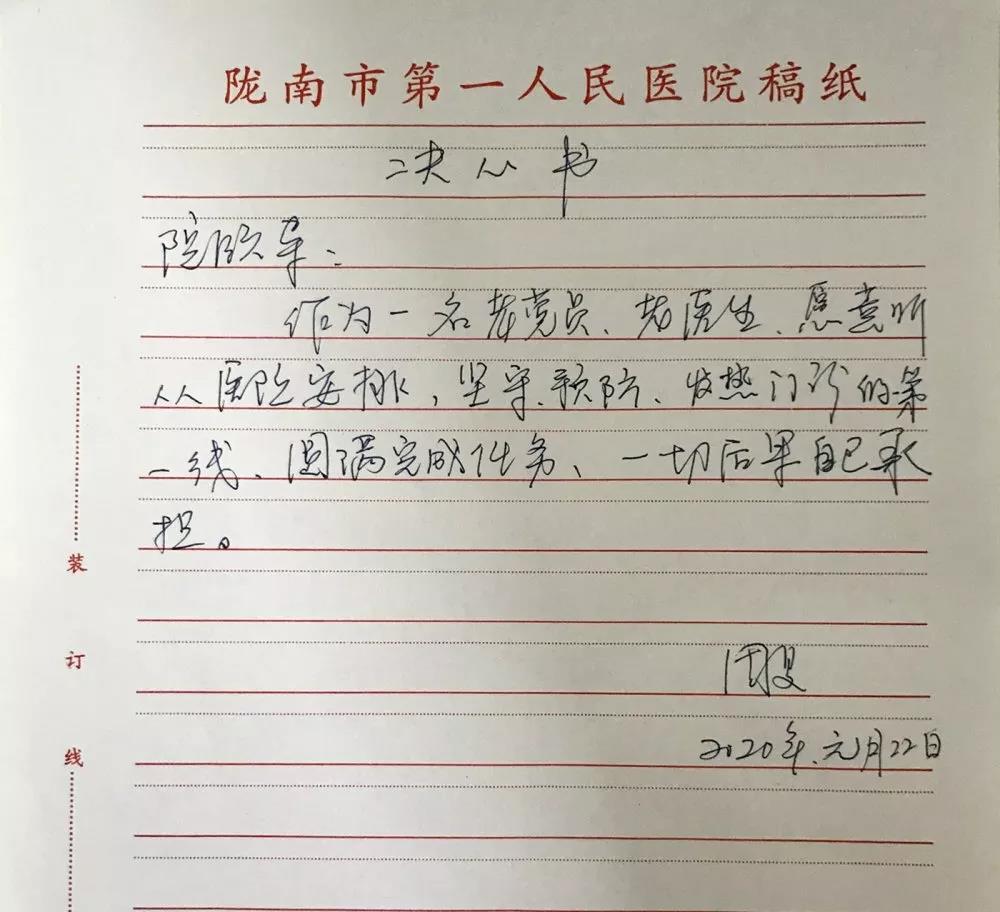 陇南市第一人民医院稿纸
决心书
院领导：
作为一名老党员、老医生、愿意听
从医院安排，坚守预防、发热门诊的第
一线、圆满完成任务、一切后果自己承
担。
2020年、元月22日
装
订
线